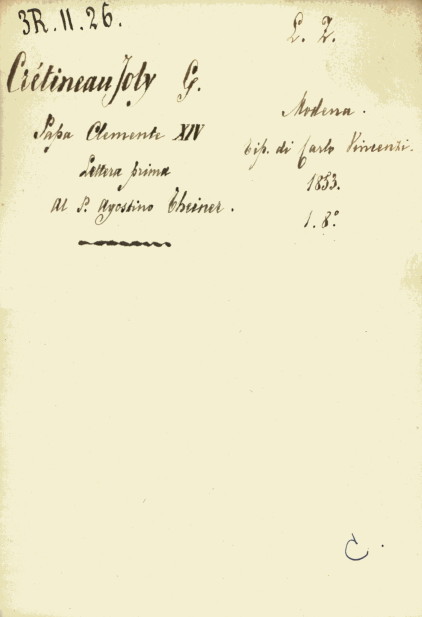 3R.II.26.
L. Z.
Crétineau Joly G.
Papa Clemente XIV
Lettera prima
Al P. Agostino Theiner.
Modena.
Tip. di Carlo Vincenzi.
1853.
1. 8º
C.